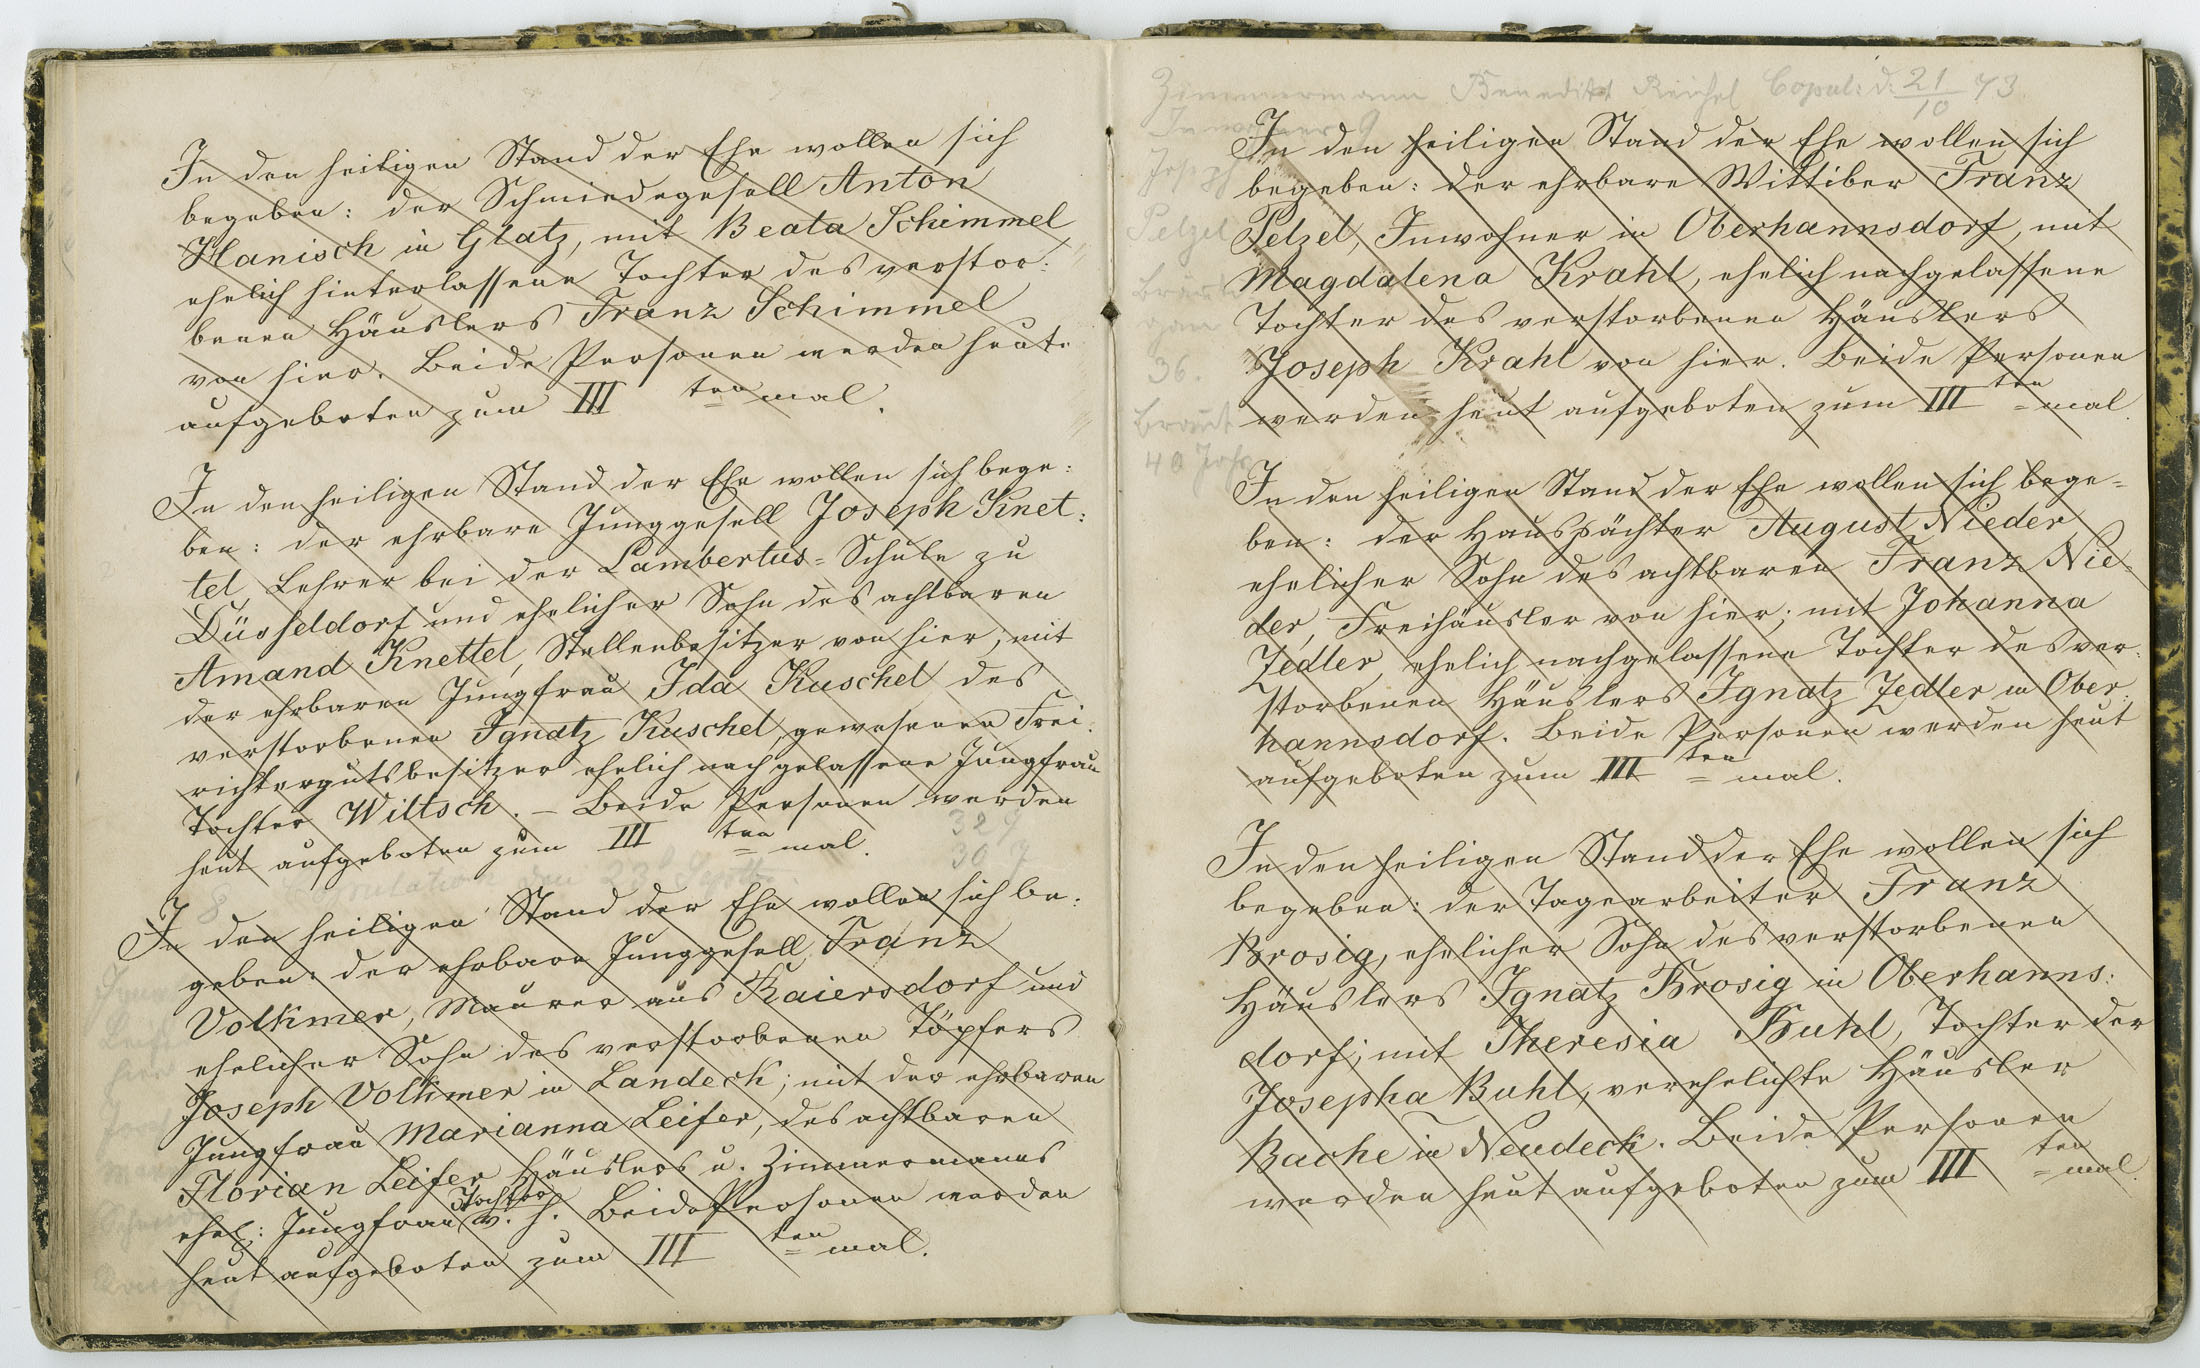 In den heiligen Stand der Ehe wollen sich
begeben: der Schmiedegesell Anton
Hanisch in Glatz, mit Beata Schimmel
ehelich hinterlassene Tochter des verstor:
benen Häuslers Franz Schimmel
von hier. Beide Personen werden heute
aufgeboten zum III ten mal.
In den heiligen Stand der Ehe wollen sich bege:
ben: der ehrbare Junggesell Joseph Knet:
tel, Lehrer bei der Lambertus-Schule zu
Düsseldorf und ehelicher Sohn des achtbaren
Amand Knettel, Stellenbesitzer von hier, mit
der ehrbaren Jungfrau Ida Kuschel des
verstorbenen Ignatz Kuschel, gewesenen Frei:
richtergutsbesitzer ehelich nachgelassene Jungfrau
Tochter Wiltsch. – Beide Personen werden
heut aufgeboten zum III ten = mal.
32 J
30 J
den 23 Septbr.
In den heiligen Stand der Ehe wollen sich be:
geben: der ehrbare Junggesell Franz
Volkmer, Maurer aus Kaiersdorf und
ehelicher Sohn des verstorbenen Töpfers
Joseph Volkmer in Landeck; mit der ehrbaren
Jungfrau Marianna Leifer, des achtbaren
Florian Leifer Häuslers u. Zimmermanns
ehel: Jungfrau Tochter v. h. Beide Personen werden
heut aufgeboten zum III ten = mal.
Zimmermann Benedikt Reichel Copul: d. 21/10 73
Inwohner
Joseph
Pelzel
36.
Braut
40 Jahr
In den heiligen Stand der Ehe wollen sich
begeben: der ehrbare Wittiber Franz
Pelzel, Inwohner in Oberhannsdorf, mit
Magdalena Krahl, ehelich nachgelassene
Tochter des verstorbenen Häuslers
Joseph Krahl von hier. Beide Personen
werden heut aufgeboten zum III ten = mal.
In den heiligen Stand der Ehe wollen sich bege=
ben: der Hauspächter August Nieder
ehelicher Sohn des achtbaren Franz Nie=
der, Freihäusler von hier; mit Johanna
Zedler, ehelich nachgelassene Tochter des ver:
storbenen Häuslers Ignatz Zedler in Ober:
hannsdorf. Beide Personen werden heut
aufgeboten zum III ten = mal.
In den heiligen Stand der Ehe wollen sich
begeben: der Tagearbeiter Franz
Brosig, ehelicher Sohn des verstorbenen
Häuslers Ignatz Brosig in Oberhanns:
dorf; mit Theresia Buhl, Tochter der
Josepha Buhl, verehelichte Häusler
Bache in Neudeck. Beide Personen
werden heut aufgeboten zum III ten = mal.